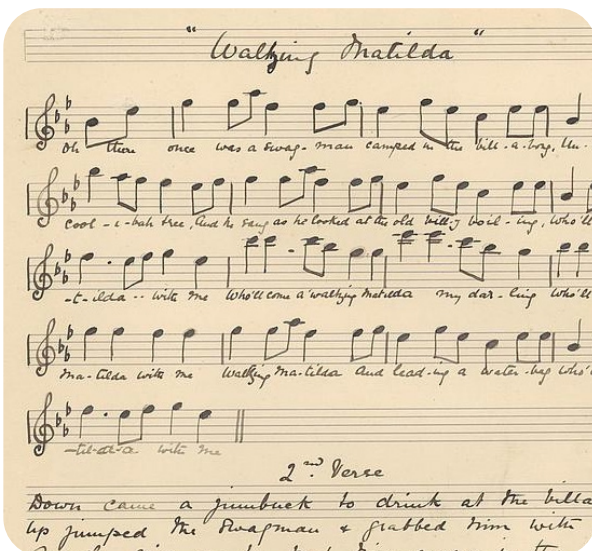 " Waltzing Matilda "
Oh there once was a swag-man camped in the bill-a-bong, Un-
cool-i-bah tree, And he sang as he looked at the old billy boil-ing, Who'll
-t-ilda -- with me Who'll come a waltzing Matilda my dar-ling Who'll
Ma-tilda with me Waltzing Ma-tilda And lead-ing a water-bag Who'l
-til-da with me
2nd. Verse
Down came a jumbuck to drink at the billa
Up jumped the Swagman & grabbed him with